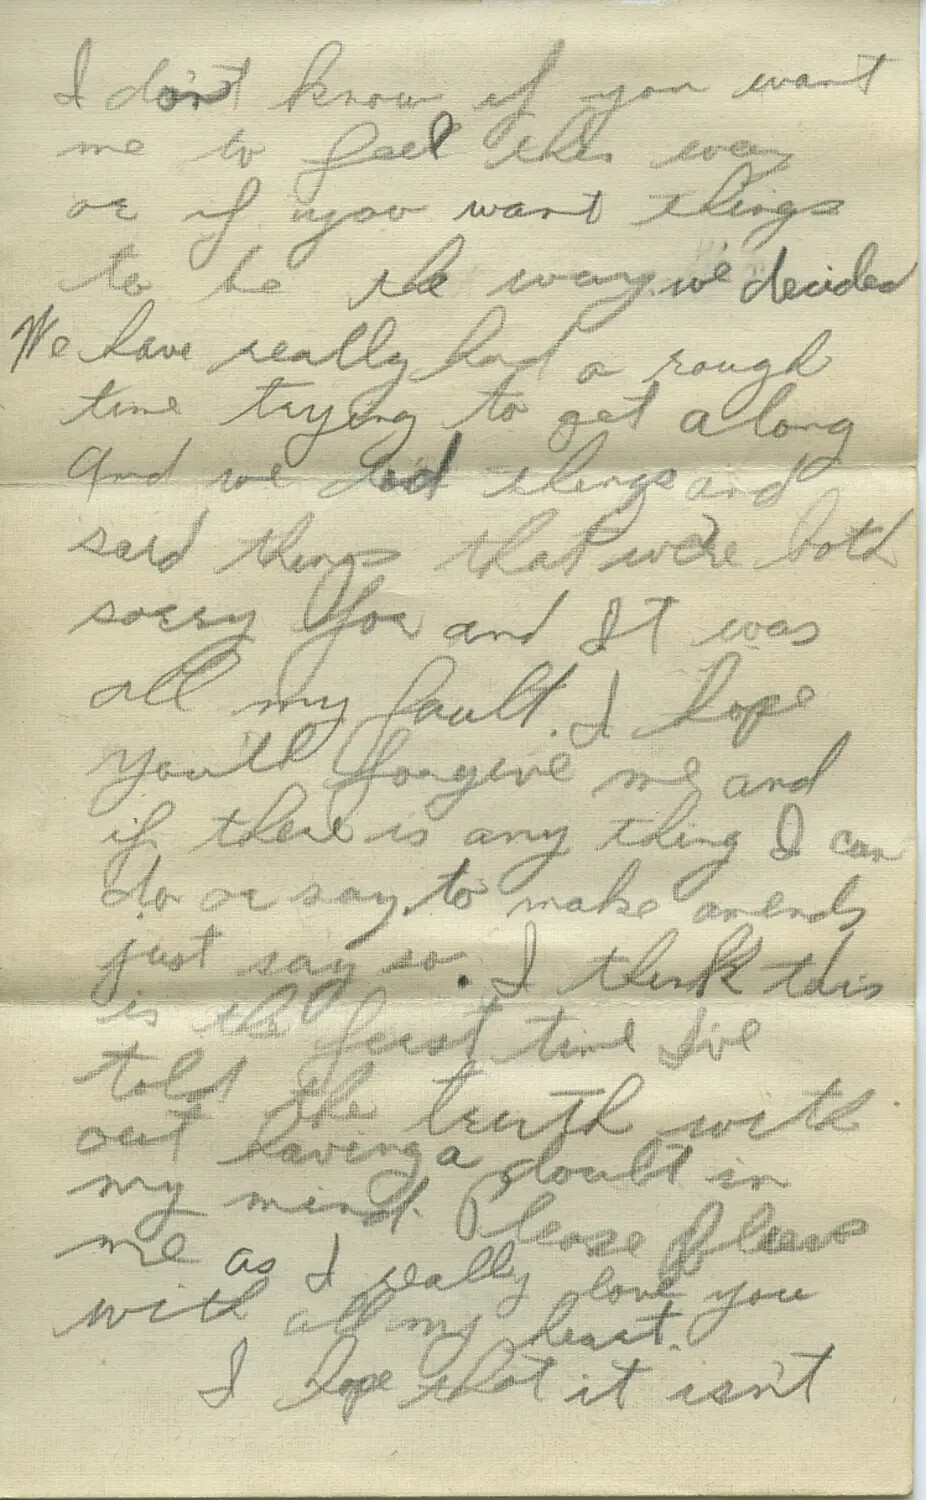 I don't know if you want
me to feel this way
or if you want things
to be the way we decided
We have really had a rough
time trying to get along
and we did things and
said things that we're both
sorry for and It was
all my fault. I hope
you'll forgive me and
if there is any thing I can
do or say to make amends
just say so. I think this
is the first time I've
told the truth with
out having a doubt in
my mind. Please Bleave
me as I really love you
with all my heart.
I hope that it isn't